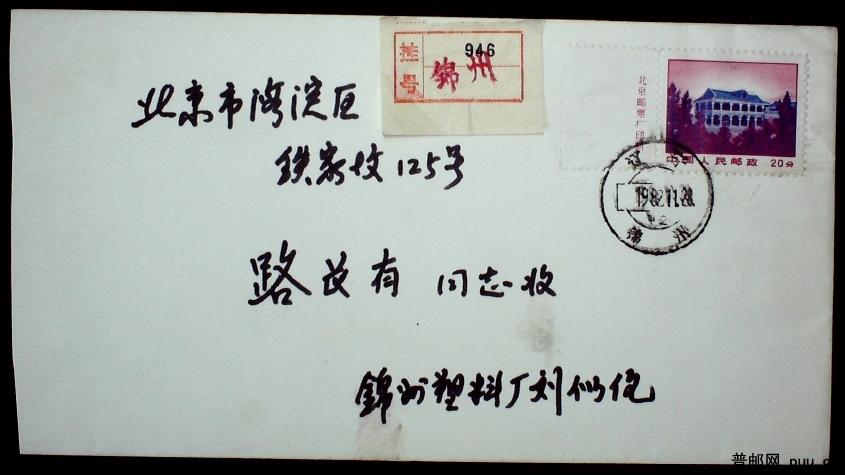 挂号
946
錦州
北京邮票厂印
中国人民邮政 20分
1982.11.28.
錦州
北京市海淀区
铁家坟125号
路 有 同志收
錦州塑料厂刘似
普邮网 puu.c